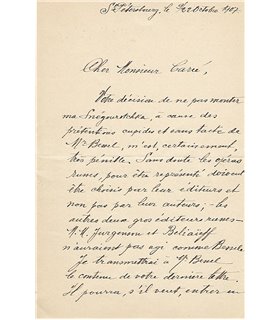 St Pétersbourg, le 9/22 Octobre 1907.
Cher Monsieur Carré,
Votre décision de ne pas monter
ma Snégourotchka, à cause des
prétentions cupides et sans tacte de
Mr Bessel, m'est, certainement,
très pénible. Sans doute les opéras
russes, pour être représentés doivent
être choisis par leur éditeurs et
non pas par leur auteurs; – les
autres deux gros éditeurs russes –
M.M. Jurgenson et Belaieff
n'auraient pas agi comme Bessel.
Je transmettrai à Mr Bessel
le contenu de votre dernière lettre.
Il pourra, s'il veut, entrer en